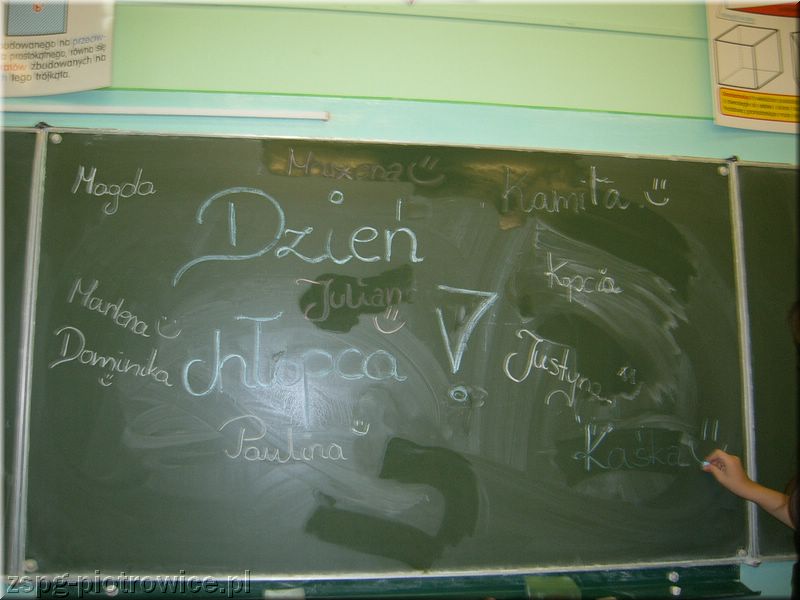 budowanego na przeciw-
prostokątnego, równa się
ratów zbudowanych na
tego trójkąta.
Magda
Marzena
Kamila
Dzień
Kępcia
Juliana
Marlena
!
chłopca
Dominika
Justyna
Paulina
Kaśka
zspg-piotrowice.pl